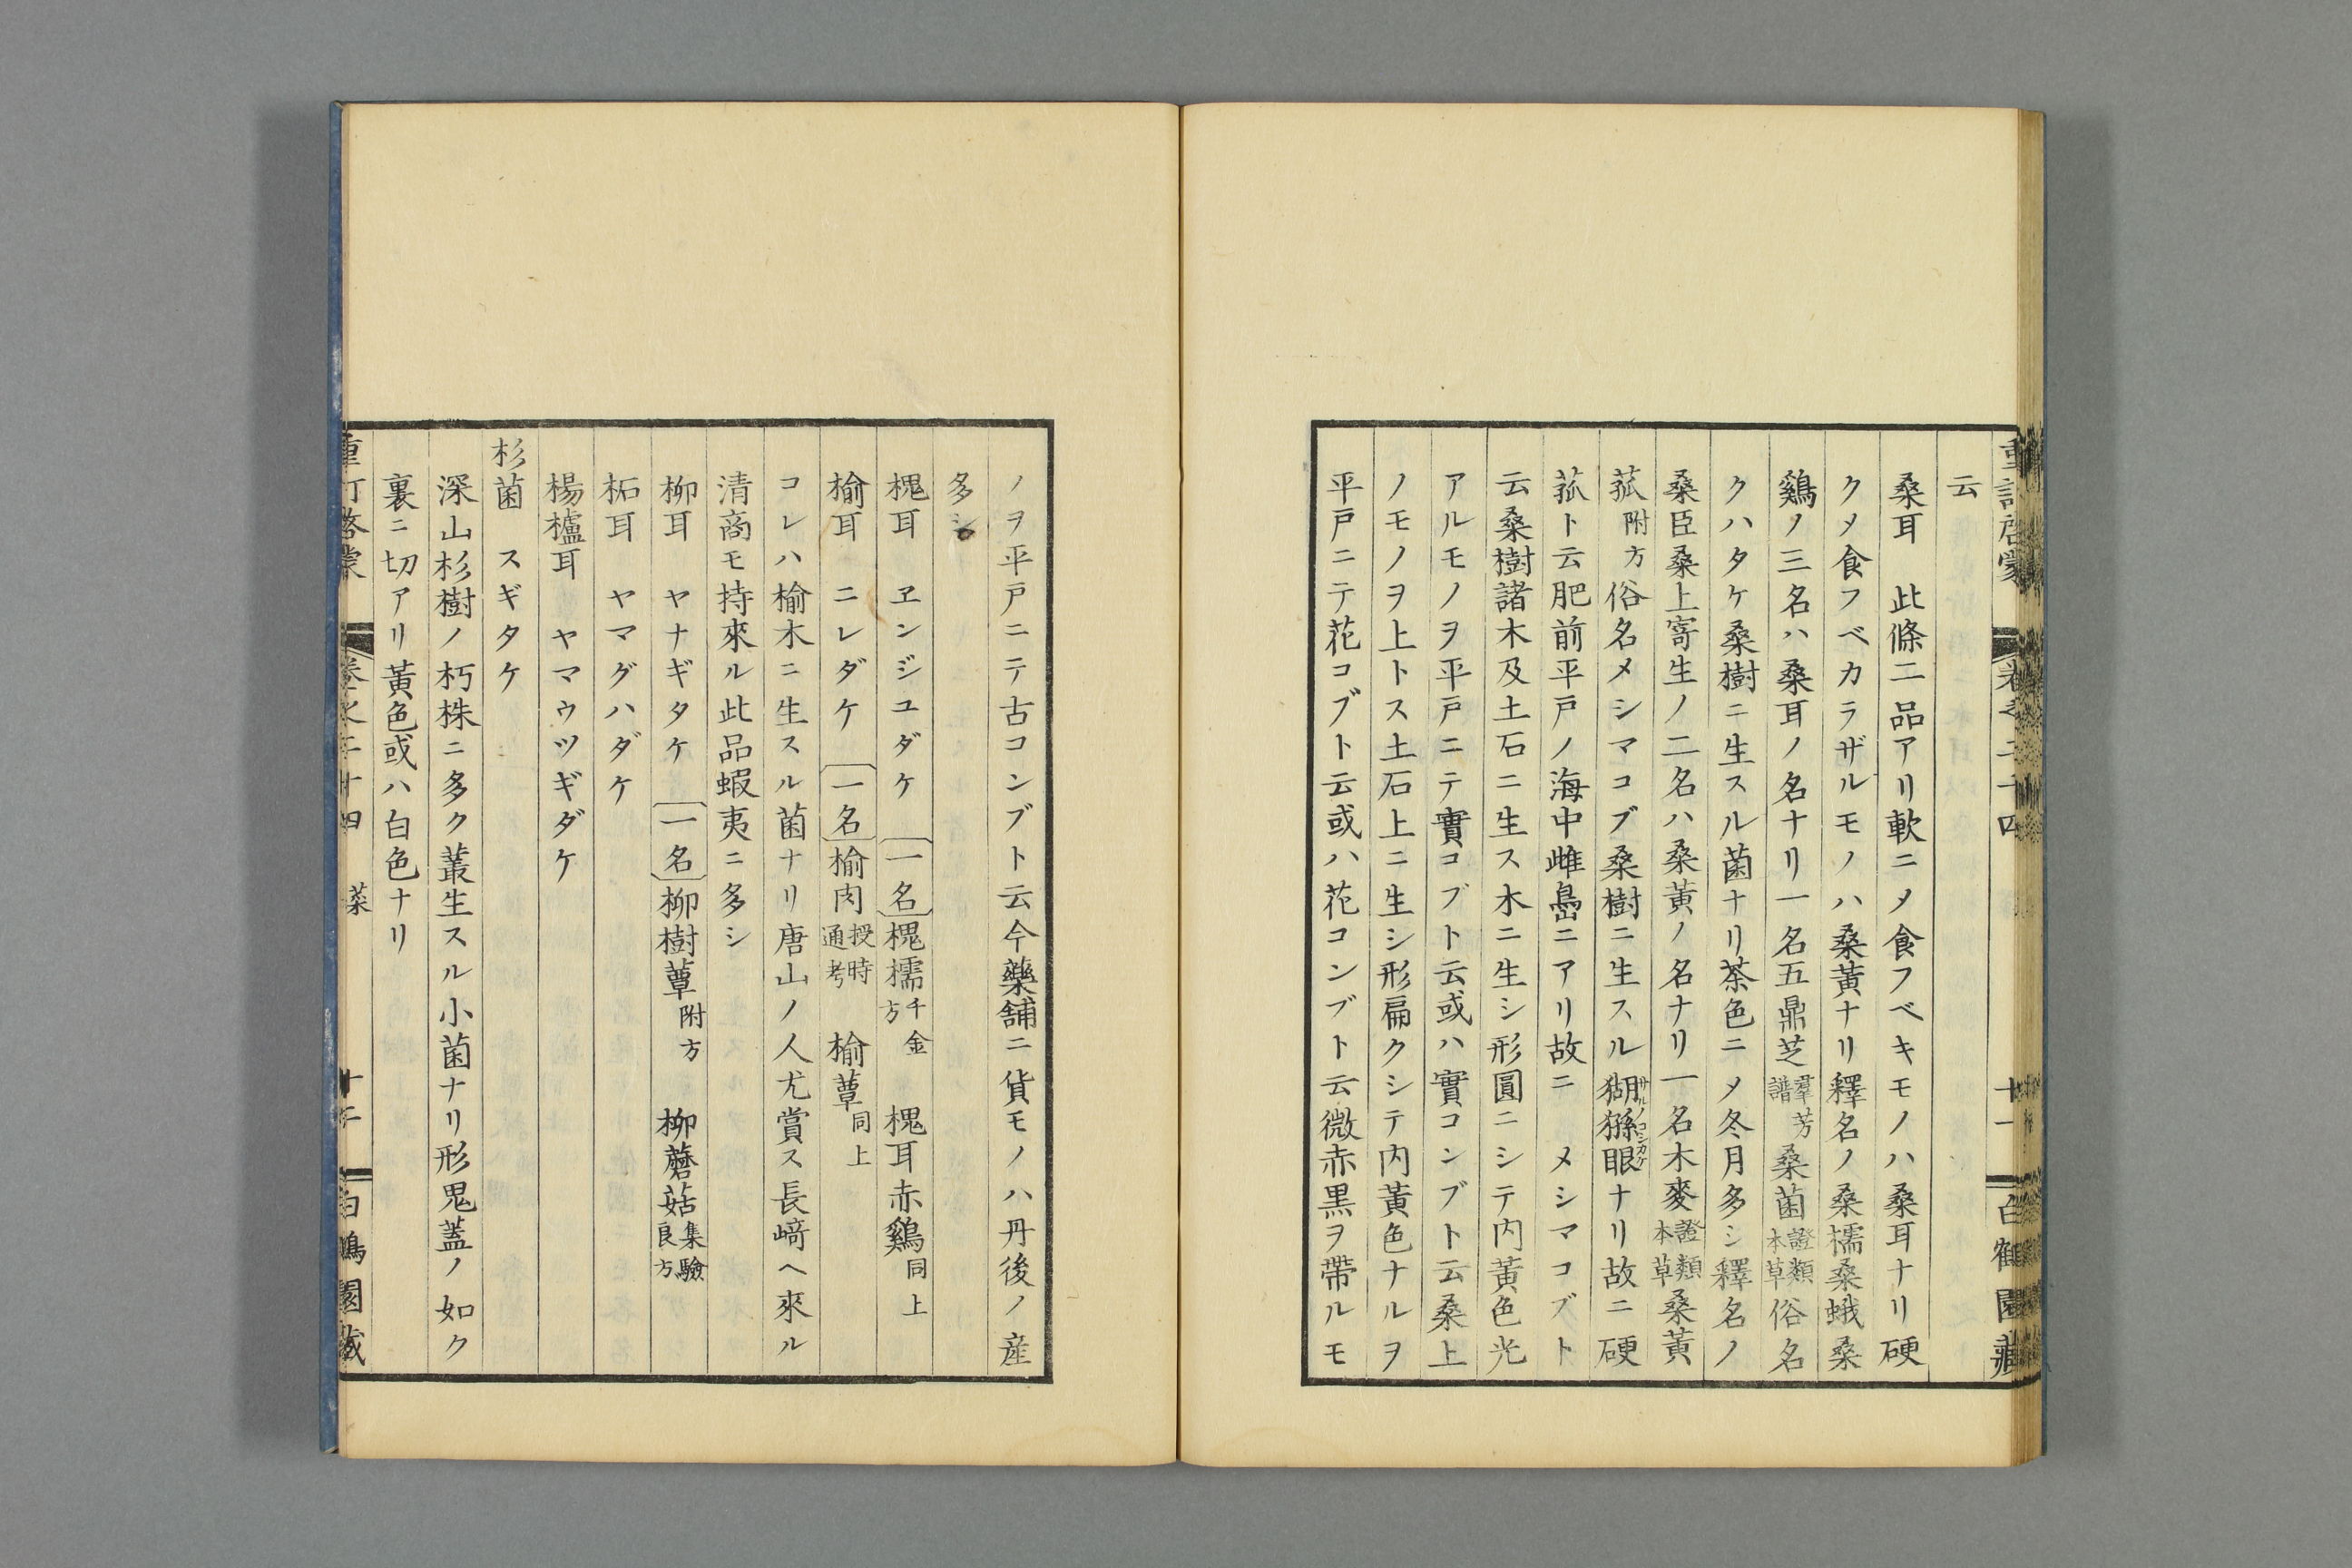 云
桑耳　此條二品アリ軟ニメ食フベキモノハ桑耳ナリ硬
クメ食フベカラザルモノハ桑黃ナリ釋名ノ桑檽桑蛾桑
鷄ノ三名ハ桑耳ノ名ナリ一名五鼎芝羣芳譜桑菌證類本草俗名
クハタケ桑樹ニ生スル菌ナリ茶色ニメ冬月多シ釋名ノ
桑臣桑上寄生ノ二名ハ桑黃ノ名ナリ一名木麥證類本草桑黃
菰附方俗名メシマコブ桑樹ニ生スル猢猻眼サルノコシカケナリ故ニ硬
菰ト云肥前平戸ノ海中雌嶌ニアリ故ニ　メシマコブト
云桑樹諸木及土石ニ生ス木ニ生シ形圓ニシテ内黃色光
アルモノヲ平戸ニテ實コブト云或ハ實コンブト云桑上
ノモノヲ上トス土石上ニ生シ形扁クシテ内黃色ナルヲ
平戸ニテ花コブト云或ハ花コンブト云微赤黒ヲ帶ルモ
ノヲ平戸ニテ古コンブト云今藥舖ニ貨モノハ丹後ノ産
多シ
槐耳　ヱンジユダケ　一名　槐檽千金方　槐耳　赤鷄同上
榆耳　ニレダケ　一名　榆肉授時通考　榆蕈同上
コレハ榆木ニ生スル菌ナリ唐山ノ人尤賞ス長﨑ヘ來ル
清商モ持來ル此品蝦夷ニ多シ
柳耳　ヤナギタケ　一名　柳樹蕈附方　柳蘑菇集驗良方
柘耳　ヤマグハダケ
楊櫨耳　ヤマウツギダケ
杉菌　スギタケ
深山杉樹ノ朽株ニ多ク叢生スル小菌ナリ形鬼蓋ノ如ク
裏ニ切アリ黃色或ハ白色ナリ